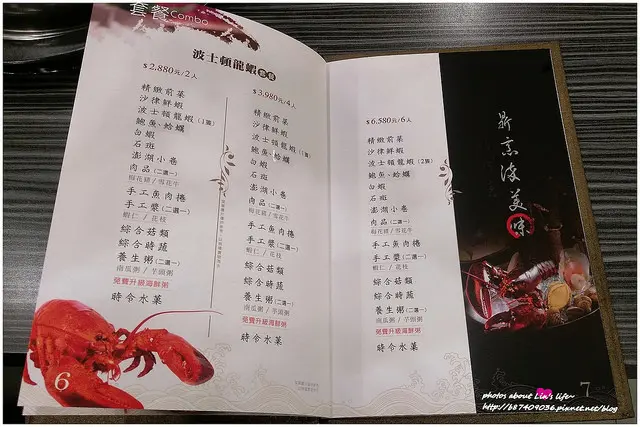 套餐Combo
波士頓龍蝦套餐
$2,880元/2人
精緻前菜
沙律鮮蝦
波士頓龍蝦(1隻)
鮑魚、蛤蠣
白蝦
石斑
澎湖小卷
肉品(二選一)
梅花豬/雪花牛
手工魚肉捲
手工漿(二選一)
蝦仁/花枝
綜合菇類
綜合時蔬
養生粥(二選一)
南瓜粥/芋頭粥
免費升級海鮮粥
時令水菓
$3,980元/4人
精緻前菜
沙律鮮蝦
波士頓龍蝦(1隻)
鮑魚、蛤蠣
白蝦
石斑
澎湖小卷
肉品(二選一)
梅花豬/雪花牛
手工魚肉捲
手工漿(二選一)
蝦仁/花枝
綜合菇類
綜合時蔬
養生粥(二選一)
南瓜粥/芋頭粥
免費升級海鮮粥
時令水菓
$6,580元/6人
精緻前菜
沙律鮮蝦
波士頓龍蝦(2隻)
鮑魚、蛤蠣
白蝦
石斑
澎湖小卷
肉品(二選一)
梅花豬/雪花牛
手工魚肉捲
手工漿(二選一)
蝦仁/花枝
綜合菇類
綜合時蔬
養生粥(二選一)
南瓜粥/芋頭粥
免費升級海鮮粥
時令水菓
鼎烹海美味
6
7
photos about Lin's life~
http://b87409036.pixnet.net/blog